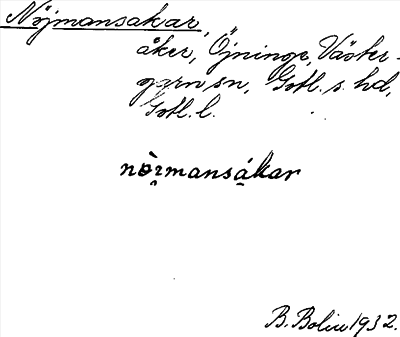 Nöjmansakar,
åker, Öjninge, Väster-
garn sn, Gotl. s. hd,
Gotl. l.
nɷ̀ɪmansákar
B. Bolin 1932.